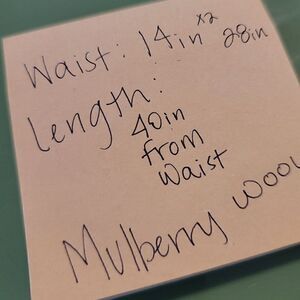 Waist: 14in x2 28in
Length:
40in
from
Waist
Mulberry wool